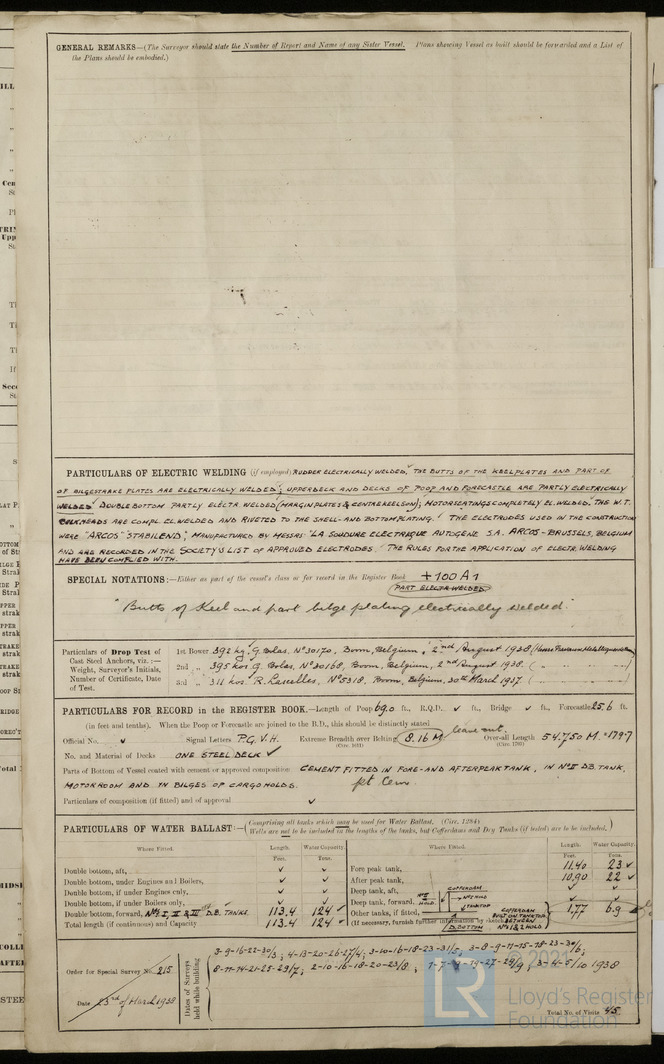 GENERAL REMARKS—(The Surveyor should state the Number of Report and Name of any Sister Vessel. Plans shewing Vessel as built should be forwarded and a List of
the Plans should be embodied.)
PARTICULARS OF ELECTRIC WELDING (if employed) RUDDER ELECTRICALLY WELDED, THE BUTTS OF THE KEELPLATES AND PART OF
OF BILGESTRAKE PLATES ARE ELECTRICALLY WELDED; UPPERDECK AND DECKS OF POOP AND FORECASTLE ARE PARTLY ELECTRICALLY
WELDED DOUBLE BOTTOM PARTLY ELECTR. WELDED (MARGINPLATES & CENTREKEELSON); MOTORSEATINGS COMPLETELY EL. WELDED. THE W.T.
BULKHEADS ARE COMPL. EL. WELDED AND RIVETED TO THE SHELL- AND BOTTOMPLATING. THE ELECTRODES USED IN THE CONSTRUCTION
WERE "ARCOS" STABILEND, MANUFACTURED BY MESSRS: "LA SOUDURE ELECTRIQUE AUTOGENE S.A. ARCOS-BRUSSELS, BELGIUM
AND ARE RECORDED IN THE SOCIETY'S LIST OF APPROVED ELECTRODES. THE RULES FOR THE APPLICATION OF ELECTR. WELDING
HAVE BEEN COMPLIED WITH.
SPECIAL NOTATIONS:—Either as part of the vessel's class or for record in the Register Book +100A1
PART ELECTR WELDED
"Butts of Keel and part bilge plating electrically welded."
Particulars of Drop Test of
Cast Steel Anchors, viz.:—
Weight, Surveyor's Initials,
Number of Certificate, Date
of Test.
1st Bower 392 kg, G. Bolas, No 30170, Boom, Belgium, 2nd August 1938
2nd „ 395 kos. G. Bolas, No 30168, Boom, Belgium, 2nd August 1938. ( — „ — „ — )
3rd „ 311 kos. R. Lascelles, No 5318, Boom, Belgium, 30th March 1937. ( — „ — „ — )
PARTICULARS FOR RECORD in the REGISTER BOOK.—Length of Poop 69.0 ft., R.Q.D. ✓ ft., Bridge ✓ ft., Forecastle 25.6 ft.
(in feet and tenths). When the Poop or Forecastle are joined to the B.D., this should be distinctly stated
leave out.
Official No. ✓ Signal Letters P.G.V.H. Extreme Breadth over Belting 8.16 M. Over-all Length 54.750 M. = 179.7
(Circ. 1611) (Circ. 1703)
No. and Material of Decks ONE STEEL DECK ✓
Parts of Bottom of Vessel coated with cement or approved composition CEMENT FITTED IN FORE- AND AFTERPEAK TANK, IN No II D.B. TANK,
MOTORROOM AND IN BILGES OF CARGOHOLDS. pt Cem.
Particulars of composition (if fitted) and of approval ✓
PARTICULARS OF WATER BALLAST:—(Comprising all tanks which may be used for Water Ballast. (Circ. 1284)
Wells are not to be included in the lengths of the tanks, but Cofferdams and Dry Tanks (if tested) are to be included.)
Where Fitted. Length. Water Capacity. Where Fitted. Length. Water Capacity.
Feet. Tons. Feet. Tons.
Double bottom, aft, ✓ ✓ Fore peak tank, 11.40 23 ✓
Double bottom, under Engines and Boilers, ✓ ✓ After peak tank, 10.90 22 ✓
Double bottom, if under Engines only, ✓ ✓ Deep tank, aft, ✓ ✓
Double bottom, if under Boilers only, ✓ ✓ Deep tank, forward, ✓ ✓
Double bottom, forward, Nos I, II & III D.B. TANKS. 113.4 124 ✓ Other tanks, if fitted, 1.77 6.9
Total length (if continuous) and Capacity 113.4 124 ✓ (If necessary, furnish further information by sketch)
COFFERDAM
No II HOLD
No I HOLD
TANKTOP
D. BOTTOM
COFFERDAM
BUILT ON TANKTOP
BETWEEN
Nos 1 & 2 HOLD
Order for Special Survey No. 215
Date 23rd of March 1938
Dates of Surveys
held while building
3-9-16-22-30/3; 4-13-20-26-27/4; 3-10-16-18-23-31/5; 3-8-9-11-15-18-23-30/6;
8-11-14-21-25-29/7; 2-10-16-18-20-23/8; 3-4-5/10 1938
Total No. of Visits 45
© 2021
LR
Lloyd's Register
Foundation